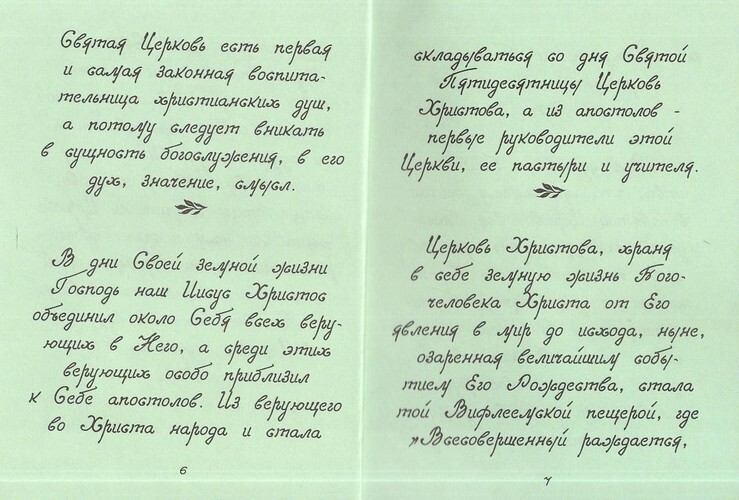 Святая Церковь есть первая
и самая законная воспита-
тельница христианских душ,
а потому следует вникать
в сущность богослужения, в его
дух, значение, смысл.
В дни Своей земной жизни
Господь наш Иисус Христос
объединил около Себя всех веру-
ющих в Него, а среди этих
верующих особо приблизил
к Себе апостолов. Из верующего
во Христа народа и стала
6
складываться со дня Святой
Пятидесятницы Церковь
Христова, а из апостолов -
первые руководители этой
Церкви, ее пастыри и учителя.
Церковь Христова, храня
в себе земную жизнь Бого-
человека Христа от Его
явления в мир до исхода, ныне,
озаренная величайшим собы-
тием Его Рождества, стала
той Вифлеемской пещерой, где
"Всесовершенный раждается,
7